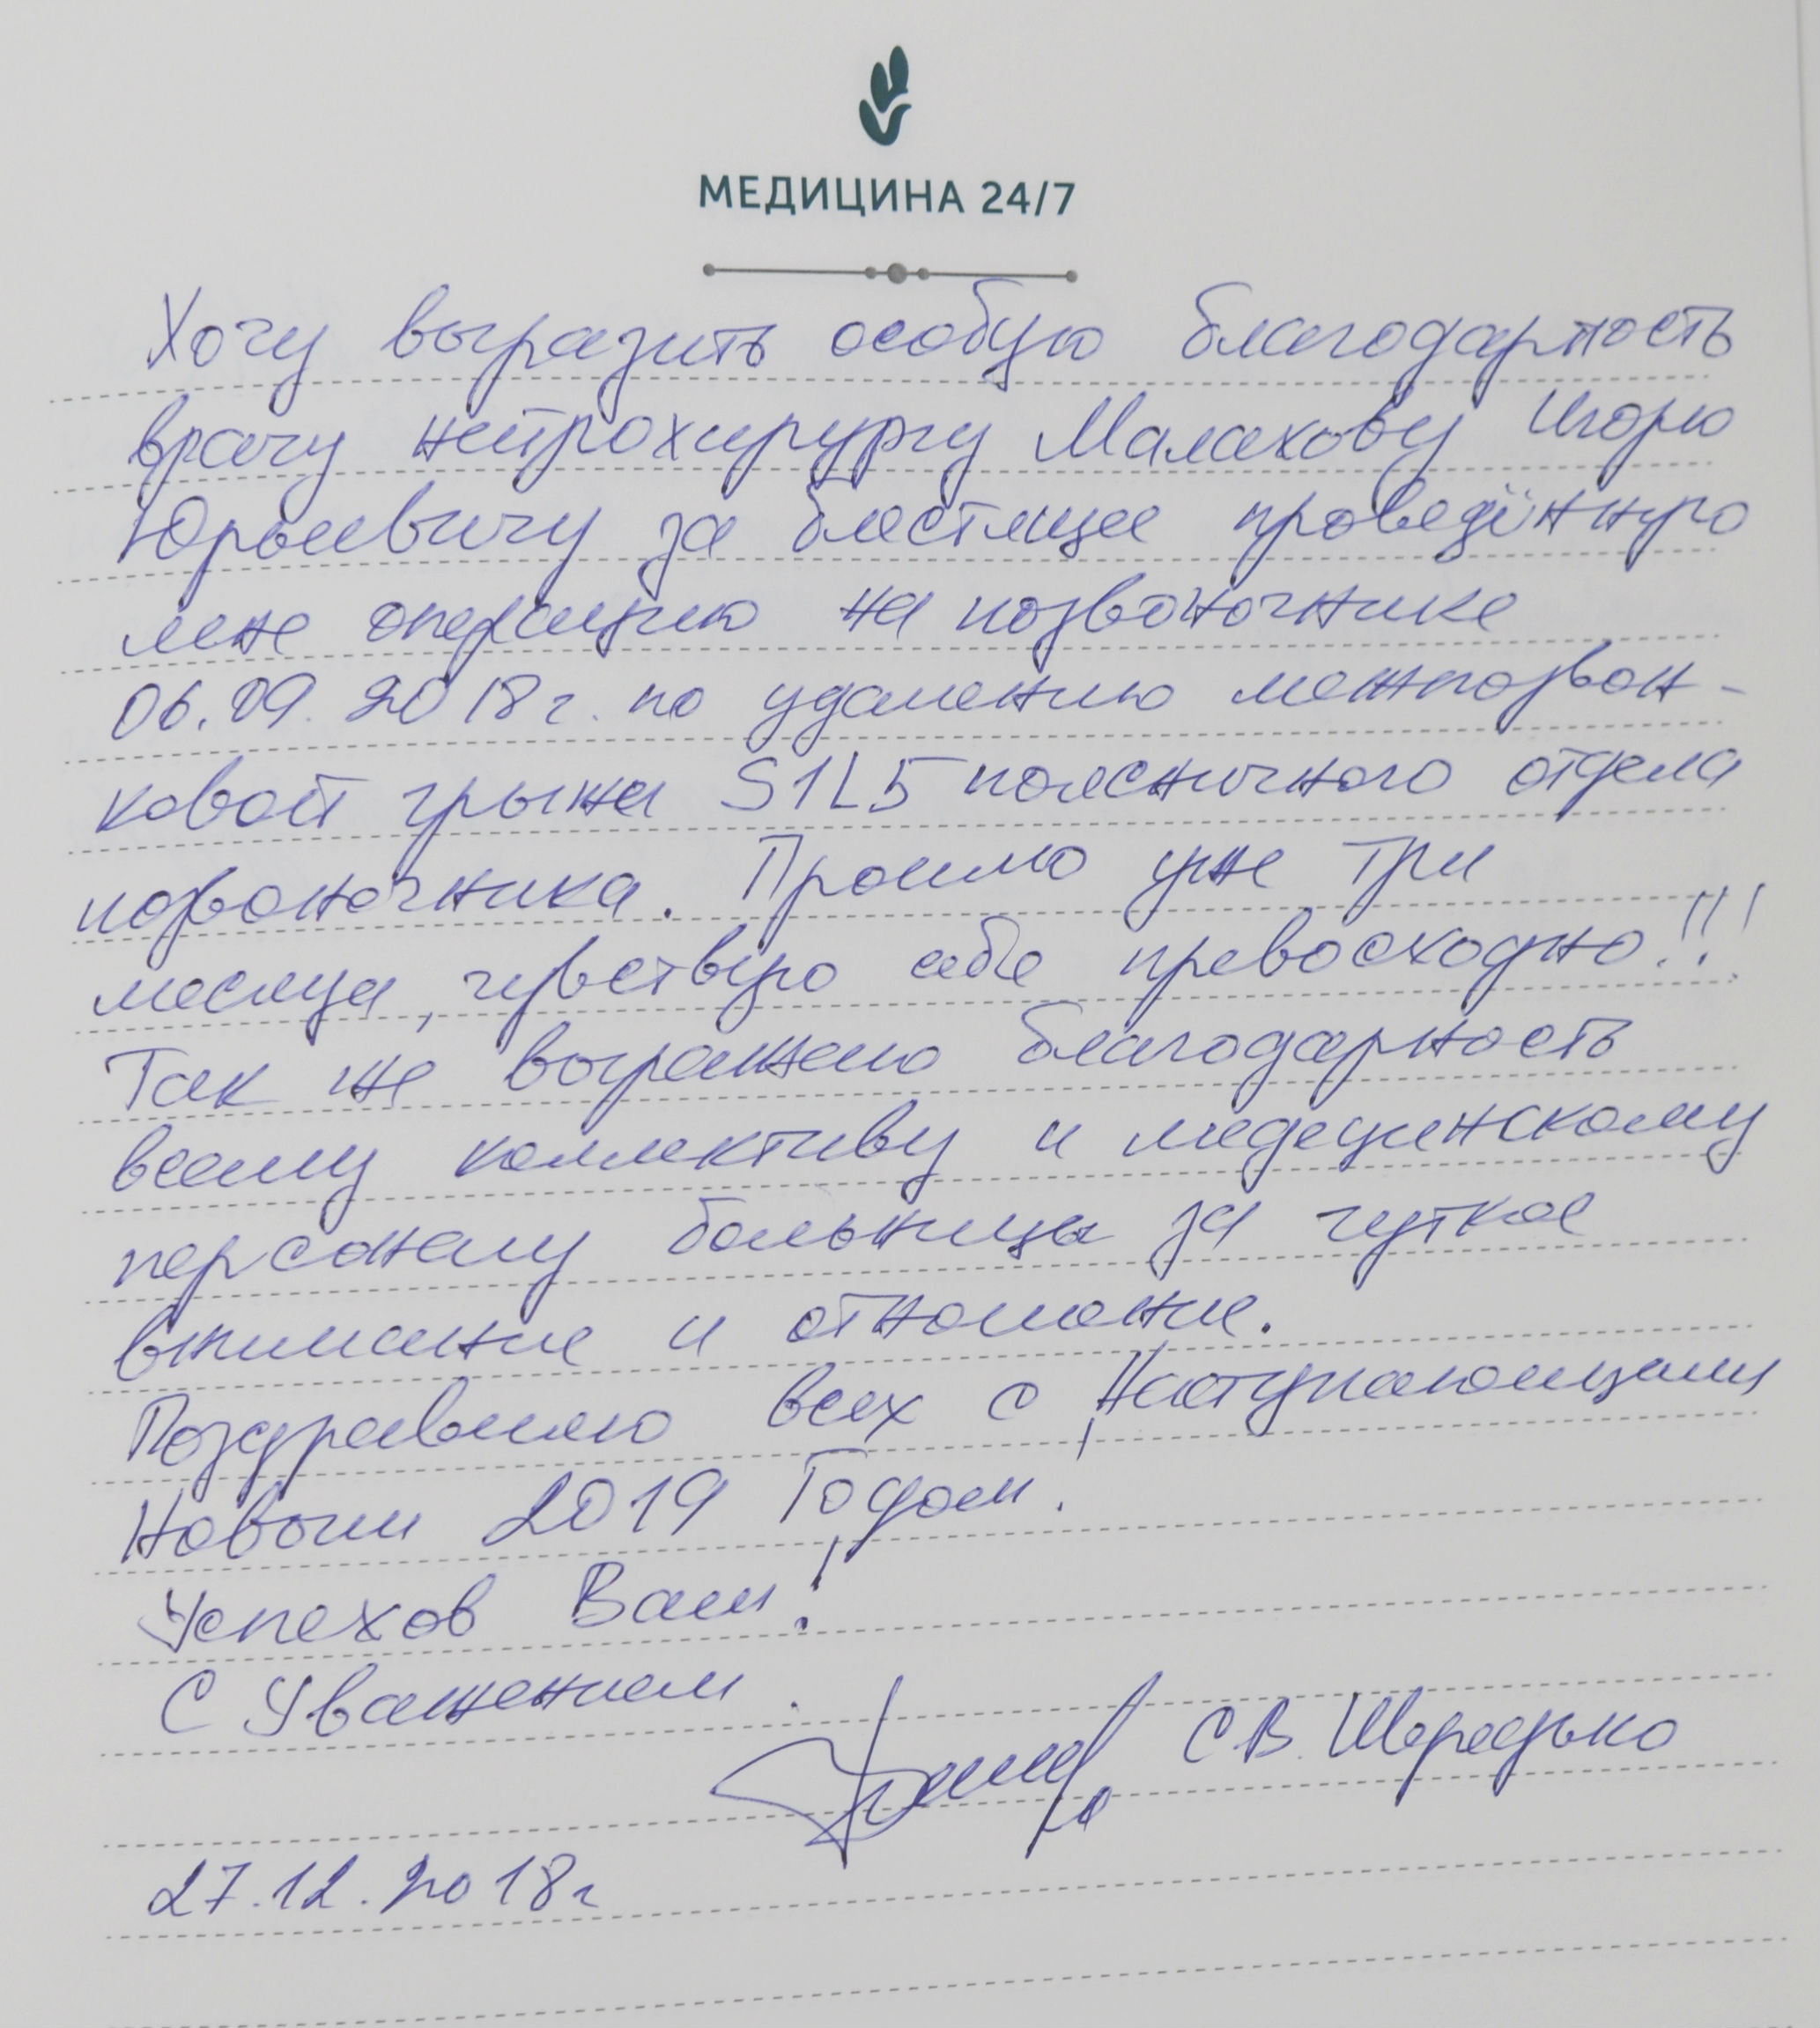 МЕДИЦИНА 24/7
Хочу выразить особую благодарность
врачу нейрохирургу Малахову Игорю
Юрьевичу за блестяще проведённую
мне операцию на позвоночнике
06.09.2018г. по удалению межпозвон-
ковой грыжи S1L5 поясничного отдела
позвоночника. Прошло уже три
месяца, чувствую себя превосходно!!!
Так же выражаю благодарность
всему коллективу и медецинскому
персоналу больницы за чуткое
внимание и отношение.
Поздравляю всех с Наступающими
Новым 2019 Годом!
Успехов Вам!
С Уважением.
С.В. Шередько
27.12.2018г